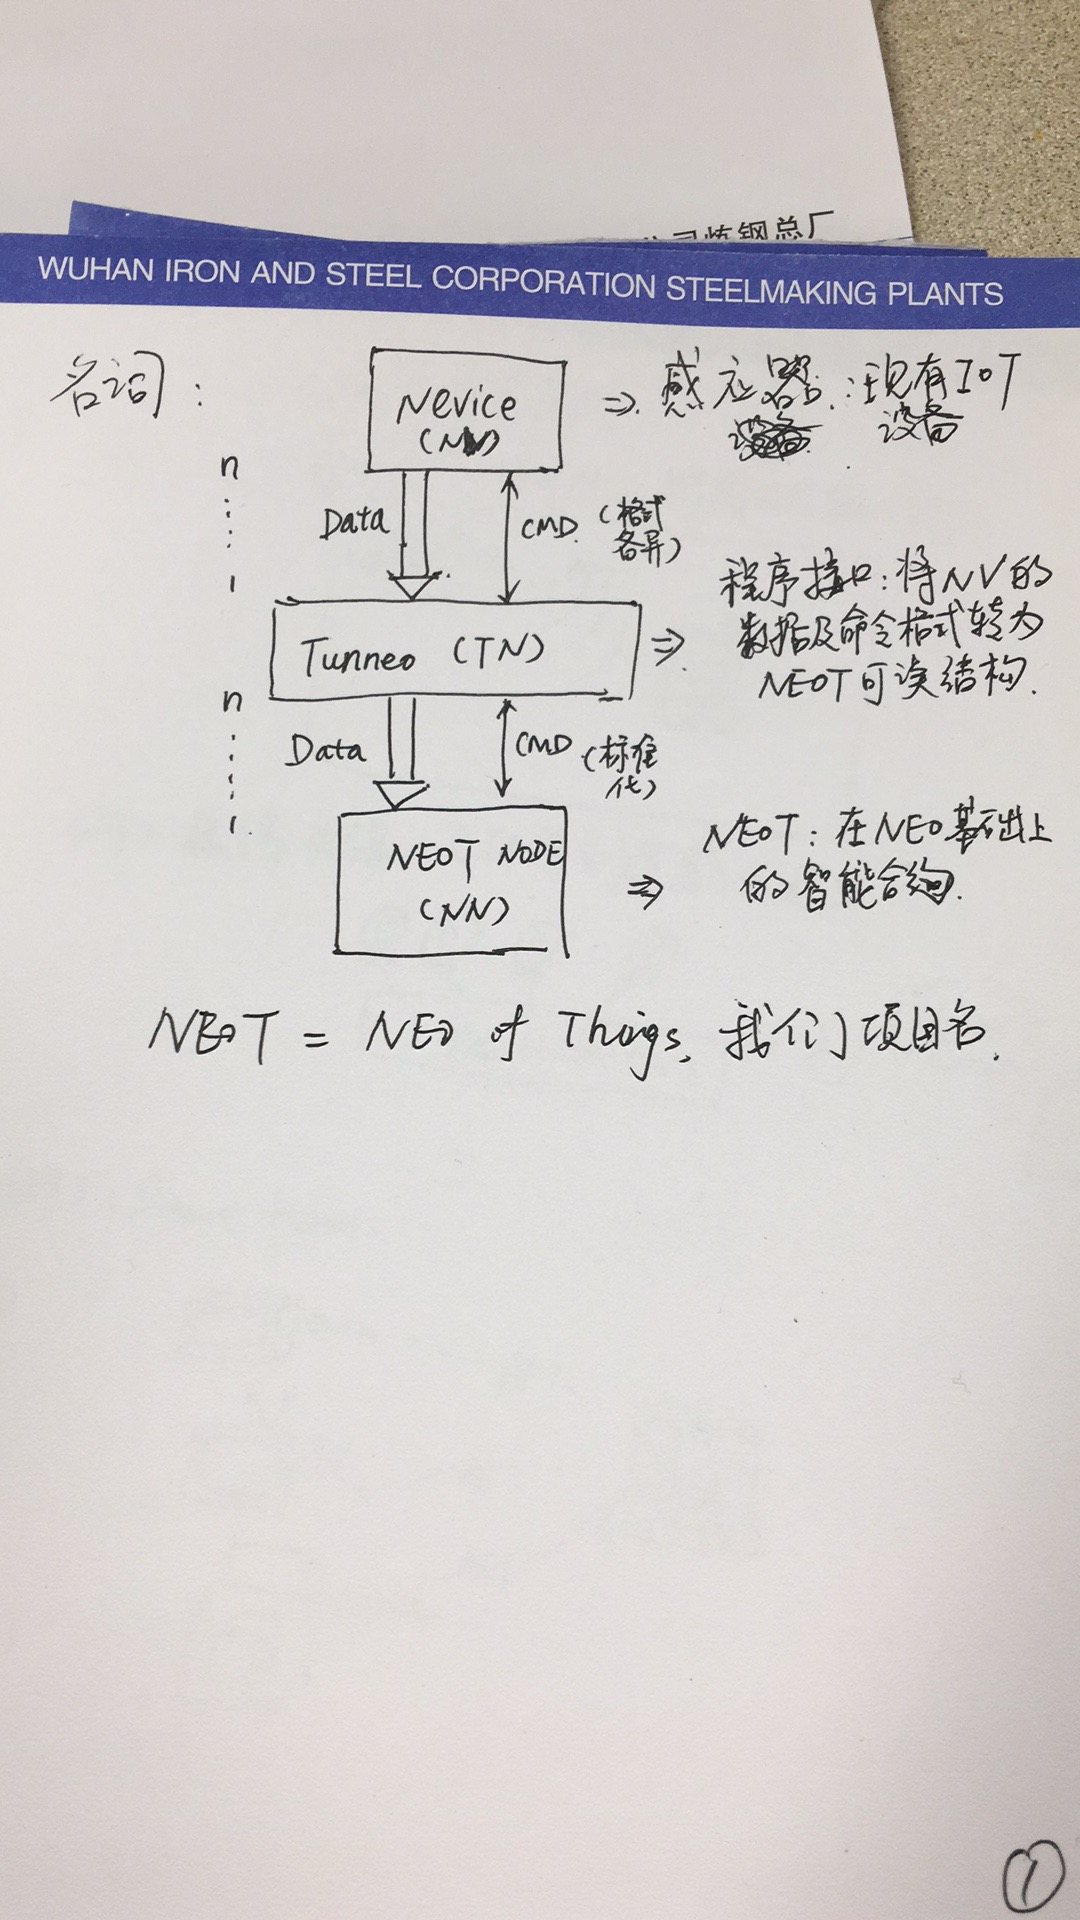 炼钢总厂
WUHAN IRON AND STEEL CORPORATION STEELMAKING PLANTS
名词:
Nevice
⇒ 感应器:现有IoT
设备
n
Data
CMD
(格式
各异)
1
Tunneo (TN)
⇒ 程序接口:将NV的
数据及命令格式转为
NEOT可读结构.
n
Data
CMD
(标准
化)
1.
NEOT NODE
(NN)
⇒ NEOT:在NEO基础上
的智能合约.
NEOT = NEO of Things, 我们项目名.
1